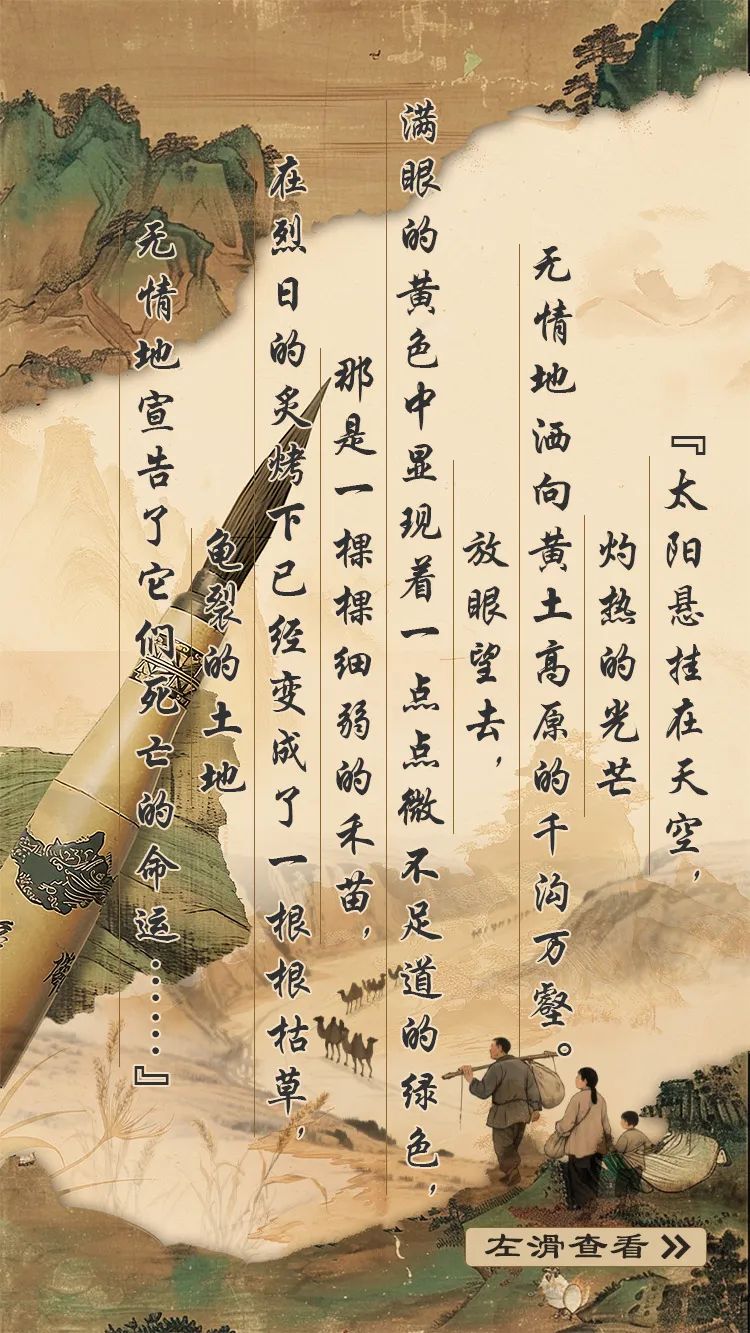 『太阳悬挂在天空，
灼热的光芒
无情地洒向黄土高原的千沟万壑。
放眼望去，
满眼的黄色中显现着一点点微不足道的绿色，
那是一棵棵细弱的禾苗，
在烈日的炙烤下已经变成了一根根枯草，
龟裂的土地
无情地宣告了它们死亡的命运……』
左滑查看